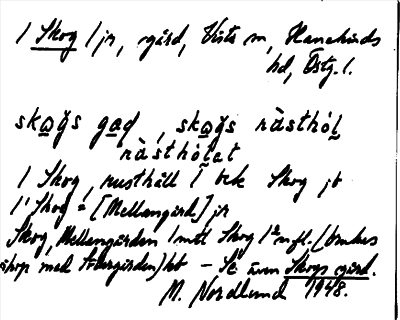 1 Skog 1 jr, gård, Vists sn, Hanekinds
hd, Östg. l.
skogs gad, skogs ràsthól
ràsthólat
1 Skog, rusthåll 1 bek Skog jb
1 Skog = [Mellangård] jr
Skog, Mellangården 1 mtl Skog 1 m.fl. (brukas
ihop med Storgården) kb — Se även Skogs gård.
M. Nordlund 1948.